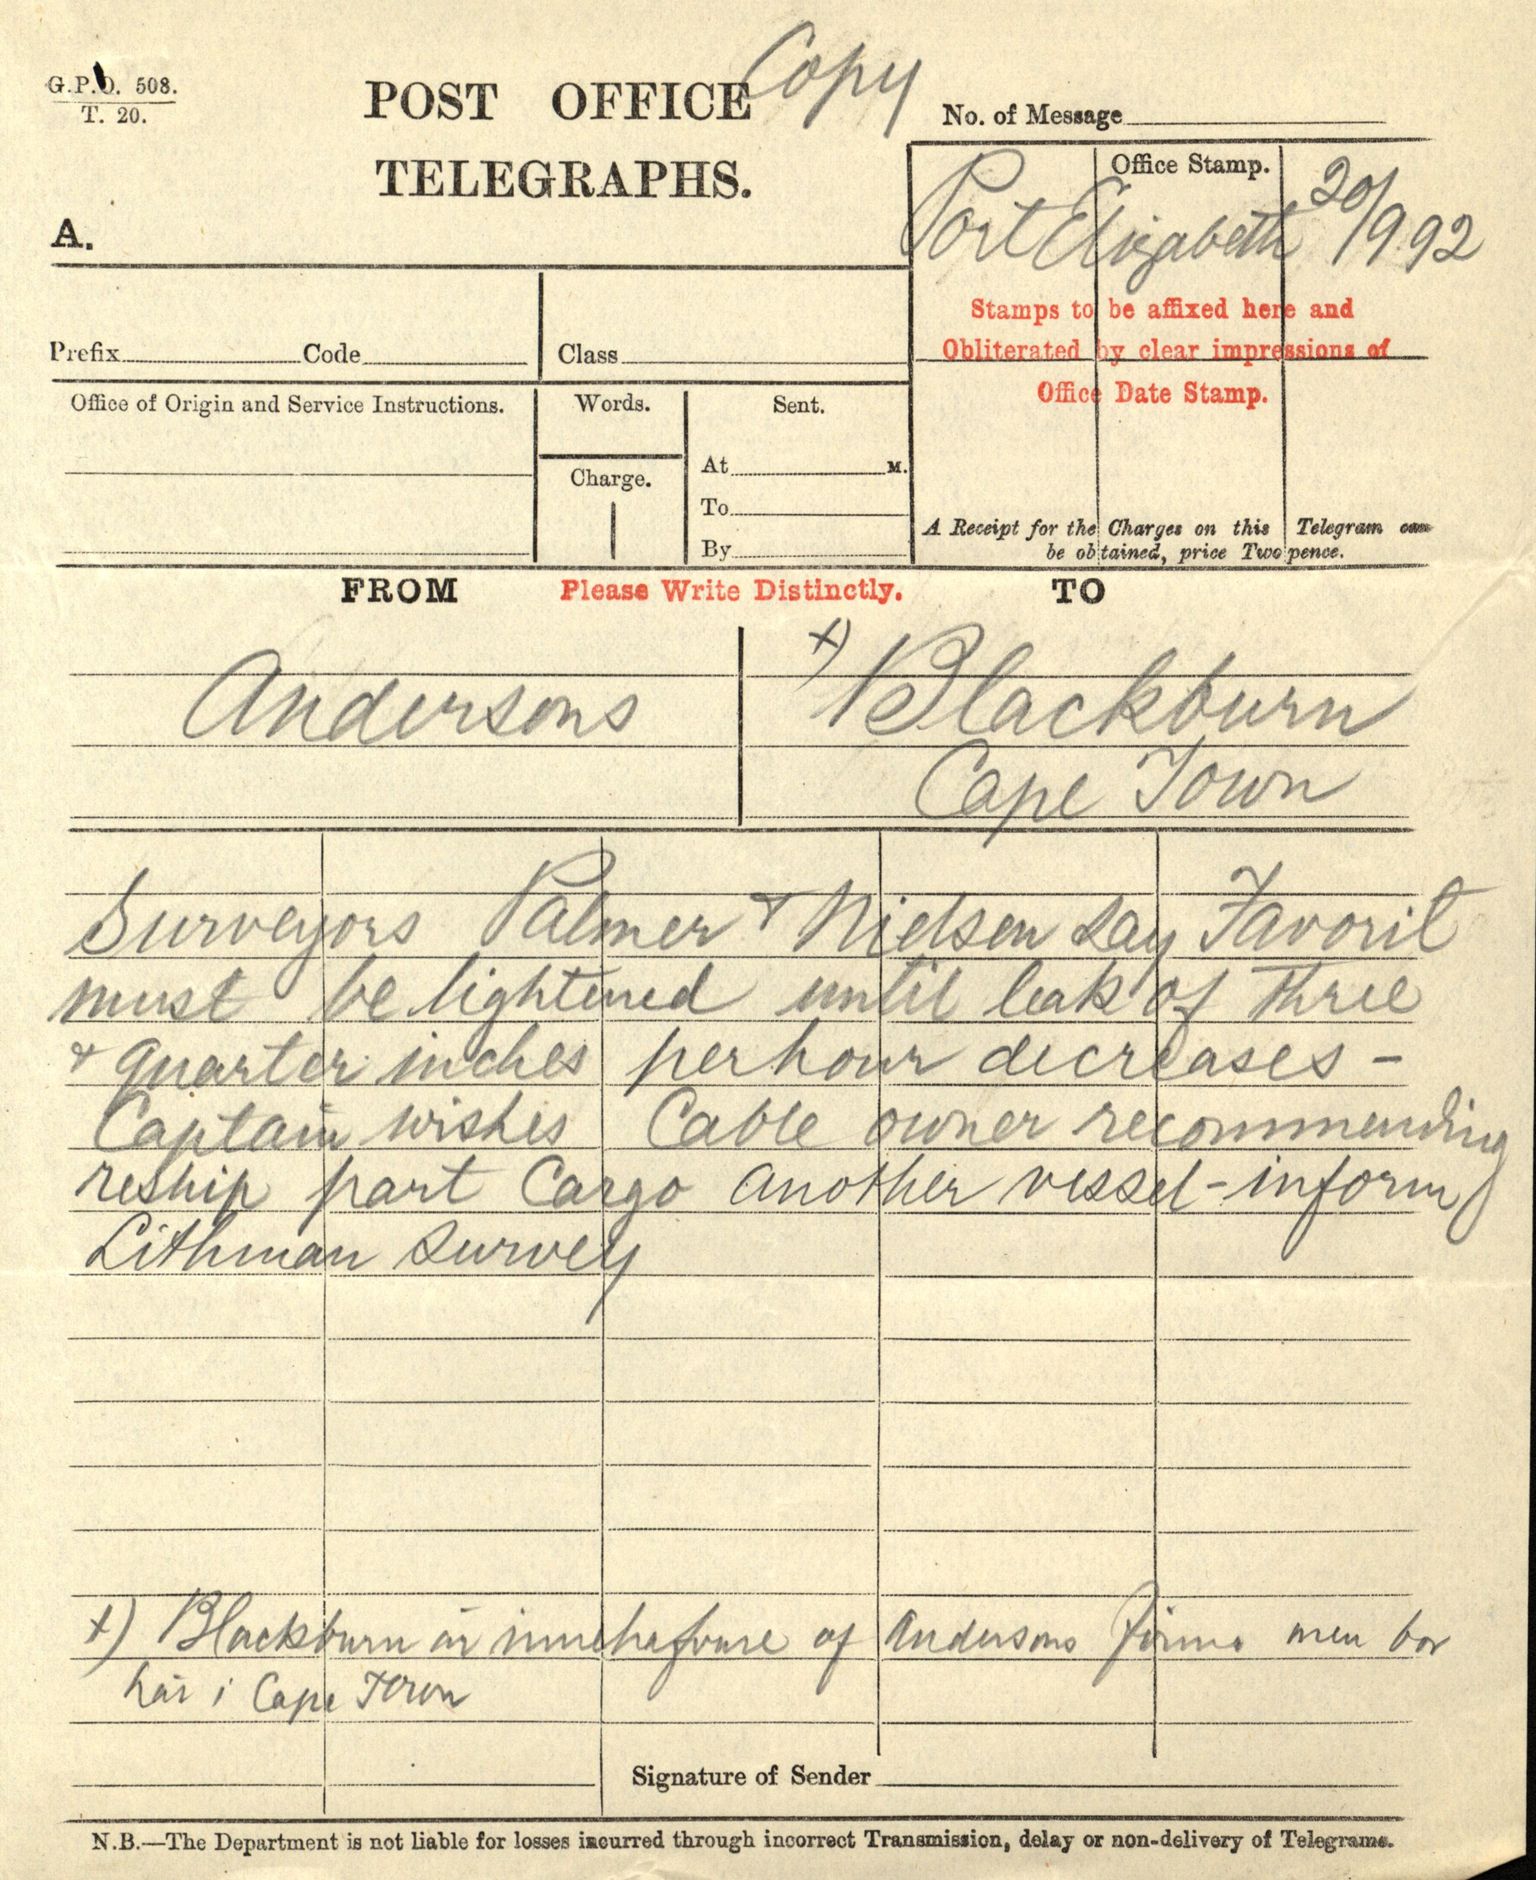 Copy
G.P.O. 508.
T. 20.
POST OFFICE
TELEGRAPHS.
No. of Message
A.
Office Stamp.
Port Elizabeth 20/9.92
Stamps to be affixed here and
Obliterated by clear impressions of
Office Date Stamp.
Prefix Code Class
Office of Origin and Service Instructions.
Words.
Charge.
Sent.
At M.
To
By
A Receipt for the Charges on this Telegram can
be obtained, price Twopence.
FROM Please Write Distinctly. TO
Andersons
+) Blackburn
Cape Town
Surveyors Palmer & Nielsen say Favorit
must be lightened until leak of three
& quarter inches per hour decreases -
Captain wishes Cable owner recommending
reship part Cargo another vessel - inform
Lithman survey
+) Blackburn är innehafvare af Andersons Firma men bor
här i Cape Town
Signature of Sender
N.B.—The Department is not liable for losses incurred through incorrect Transmission, delay or non-delivery of Telegrams.